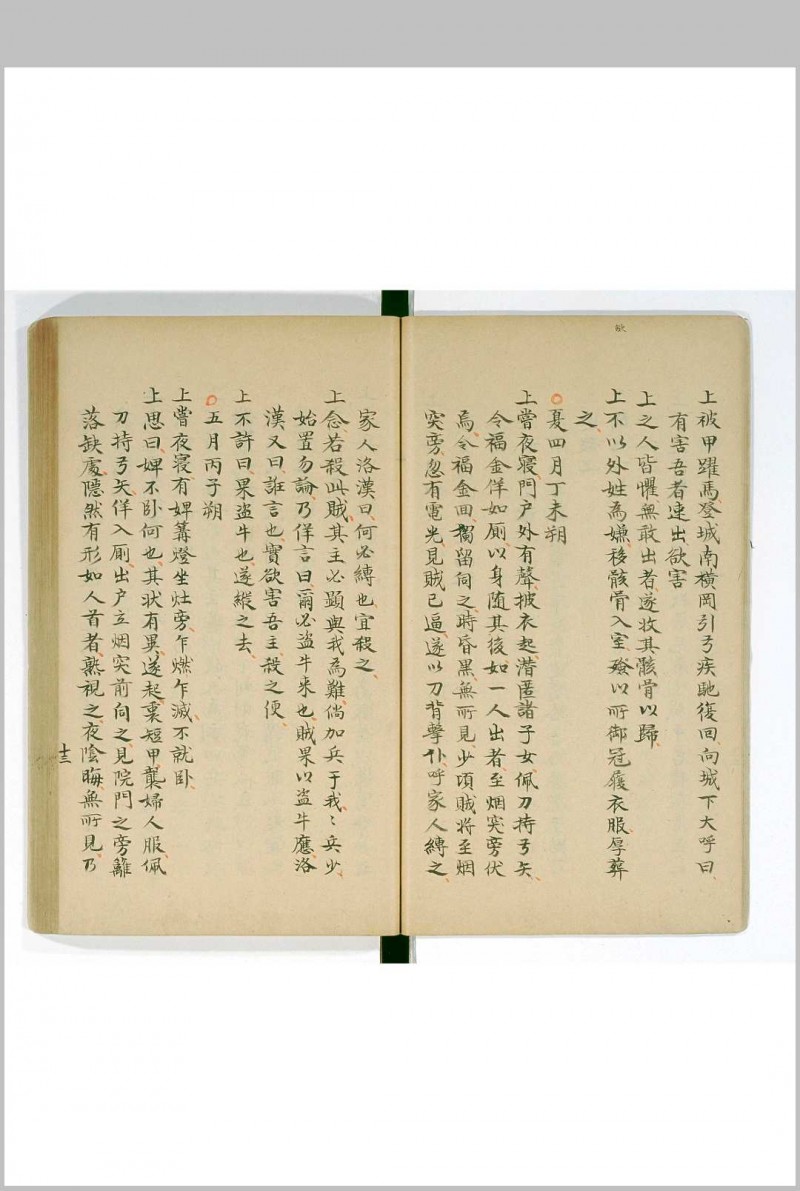 上被甲躍馬登城南橫岡引弓疾馳復回向城下大呼曰
有害吾者速出欲害
上之人皆懼無敢出者遂收其骸骨以歸
上不以外姓為嫌移骸骨入室殮以所御冠履衣服厚葬
之
夏四月丁未朔
上嘗夜寢門戶外有聲披衣起潛匿諸子女佩刀持弓矢
令福金佯如厠以身随其後如一人出者至烟突旁伏
焉令福金回獨留伺之時昏黑無所見少頃賊將至烟
突旁忽有電光見賊已逼遂以刀背擊仆呼家人縛之
家人洛漢曰何必縛也宜殺之
上念若殺此賊其主必顕與我為難倘加兵于我〻兵少
始置勿論乃佯言曰爾必盜牛来也賊果以盜牛應洛
漢又曰誑言也實欲害吾主殺之便
上不許曰果盜牛也遂縱之去
五月丙子朔
上嘗夜寢有婢篝燈坐灶旁乍燃乍滅不就卧
上思曰婢不卧何也其状有異遂起裹短甲襲婦人服佩
刀持弓矢佯入厠出户立烟突前向之見院門之旁籬
落缺處隱然有形如人首者熟視之夜陰晦無所見乃
十三